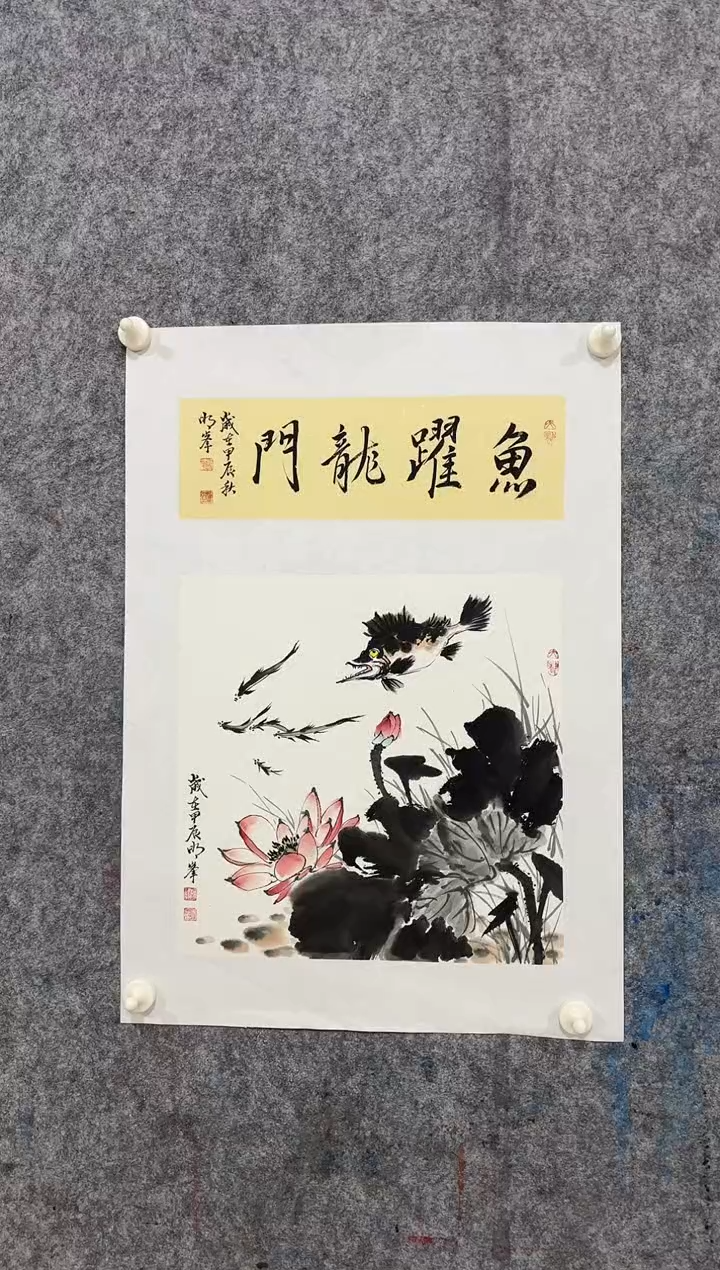 魚躍龍門
歲在甲辰秋
明峯
歲在甲辰明峯